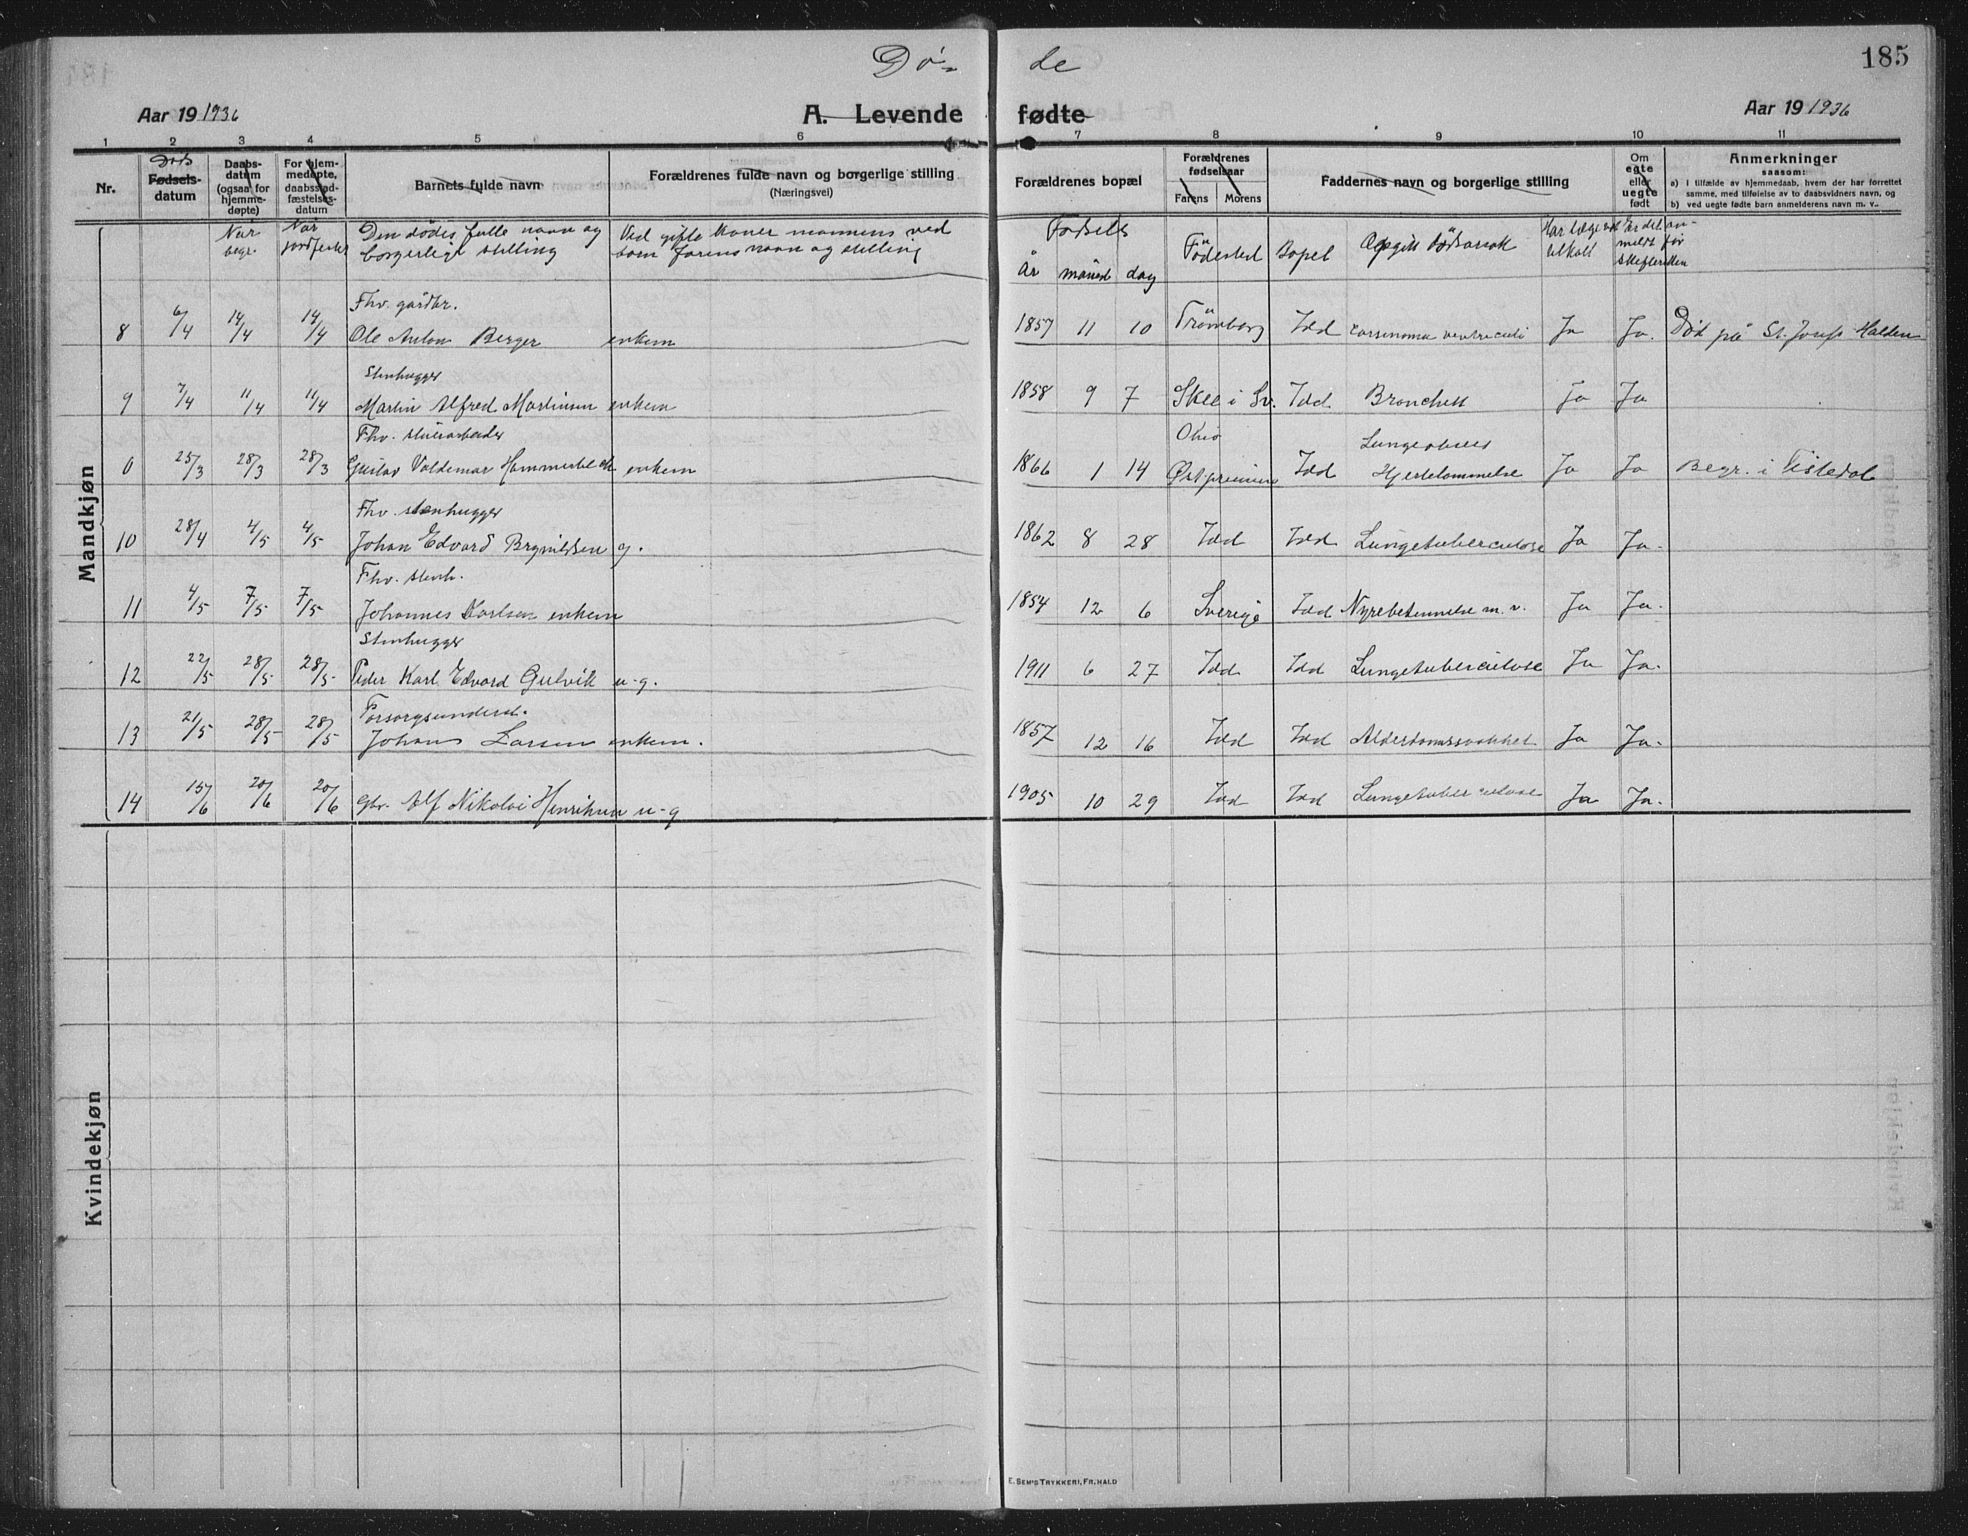 Dø- de
185
Aar 19 1936 A. Levende fødte Aar 19 1936
1 2 3 4 5 6 7 8 9 10 11
Nr.
Døds
Fødsels-
datum
Daabs-
datum
(ogsaa for
hjemme-
døpte)
For hjem-
medøpte,
daabsstad-
fæstelses-
datum
Barnets fulde navn
Forældrenes fulde navn og borgerlige stilling
(Næringsvei)
Forældrenes bopæl
Forældrenes
fødselsaar
Farens Morens
Faddernes navn og borgerlige stilling
Om
egte
eller
uegte
født
Anmerkninger
saasom:
a) I tilfælde av hjemmedaab, hvem der har forrettet
samme, med tilføielse av to daabsvidners navn, og
b) ved uegte fødte barn anmelderens navn m. v.
Når
begr.
Når
jordfestet
Den dødes fulle navn og
borgerlige stilling
Ved gifte koner mannens ved
barn farens navn og stilling
Fødsels
år måned dag
Fødested Bopel Opgitt dødsarsak
Mandkjøn
Fhv. gårdbr.
8 6/4 14/4 14/4 Ole Anton Berger enkem 1857 11 10 Trømborg Idd carsinoma ventriculi Ja Ja. Død på St. Josefs Halden
Stenhugger
9 7/4 11/4 11/4 Martin Alfred Martinsen enkem 1858 9 7 Skee i Sv. Idd Bronchitt Ja Ja
Fhv.
0 25/3 28/3 28/3 Gustav Valdemar enkem 1866 1 14 Idd Hjertelammelse Ja Ja Begr. i Tistedal
Fhv. stenhugger
10 28/4 4/5 4/5 Johan Edvard Brynildsen g. 1862 8 28 Idd Idd Lungetuberculose Ja Ja.
Fhv. stenh.
11 4/5 7/5 7/5 Johannes Karlsen enkem 1854 12 6 Sverige Idd Nyrebetennelse m. v. Ja Ja.
Stenhugger
12 22/5 28/5 28/5 Peder Karl Edvard Gulvik u-g. 1911 6 27 Idd Idd Lungetuberculose Ja Ja.
Forsorgsunderst.
13 21/5 28/5 28/5 Johans Larsen enkem. 1857 12 16 Idd Idd Alderdomssvakhet Ja Ja.
14 15/6 20/6 20/6 Gbr. Alf Nikolai Henriksen u-g 1905 10 29 Idd Idd Lungetuberculose Ja Ja.
Kvindekjøn
E. SEM'S TRYKKERI, FR.HALD